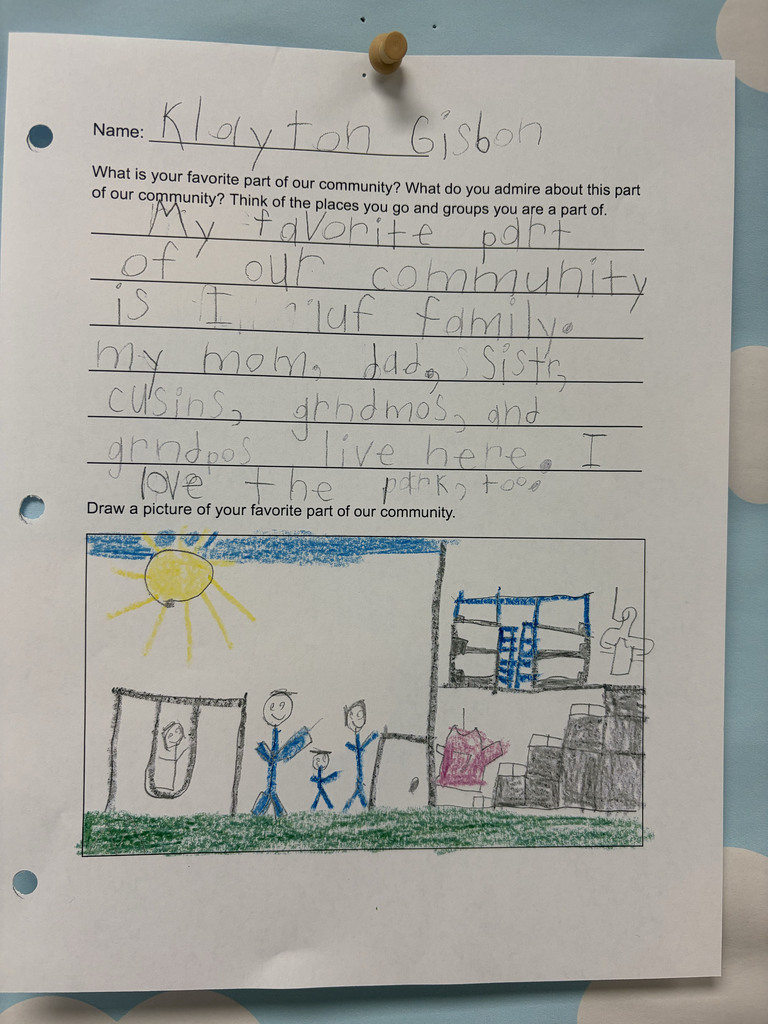 Name: Klayton Gisbon
What is your favorite part of our community? What do you admire about this part
of our community? Think of the places you go and groups you are a part of.
My favorite part
of our community
is I luf family.
my mom, dad, sistr,
cusins, grndmos, and
grndpos live here. I
love the park, too.
Draw a picture of your favorite part of our community.